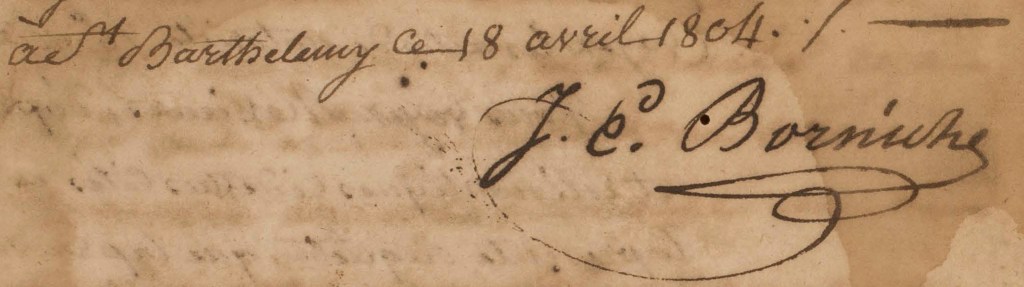 à St Barthelemy ce 18 avril 1804. /. —
J. Ed. Borniche